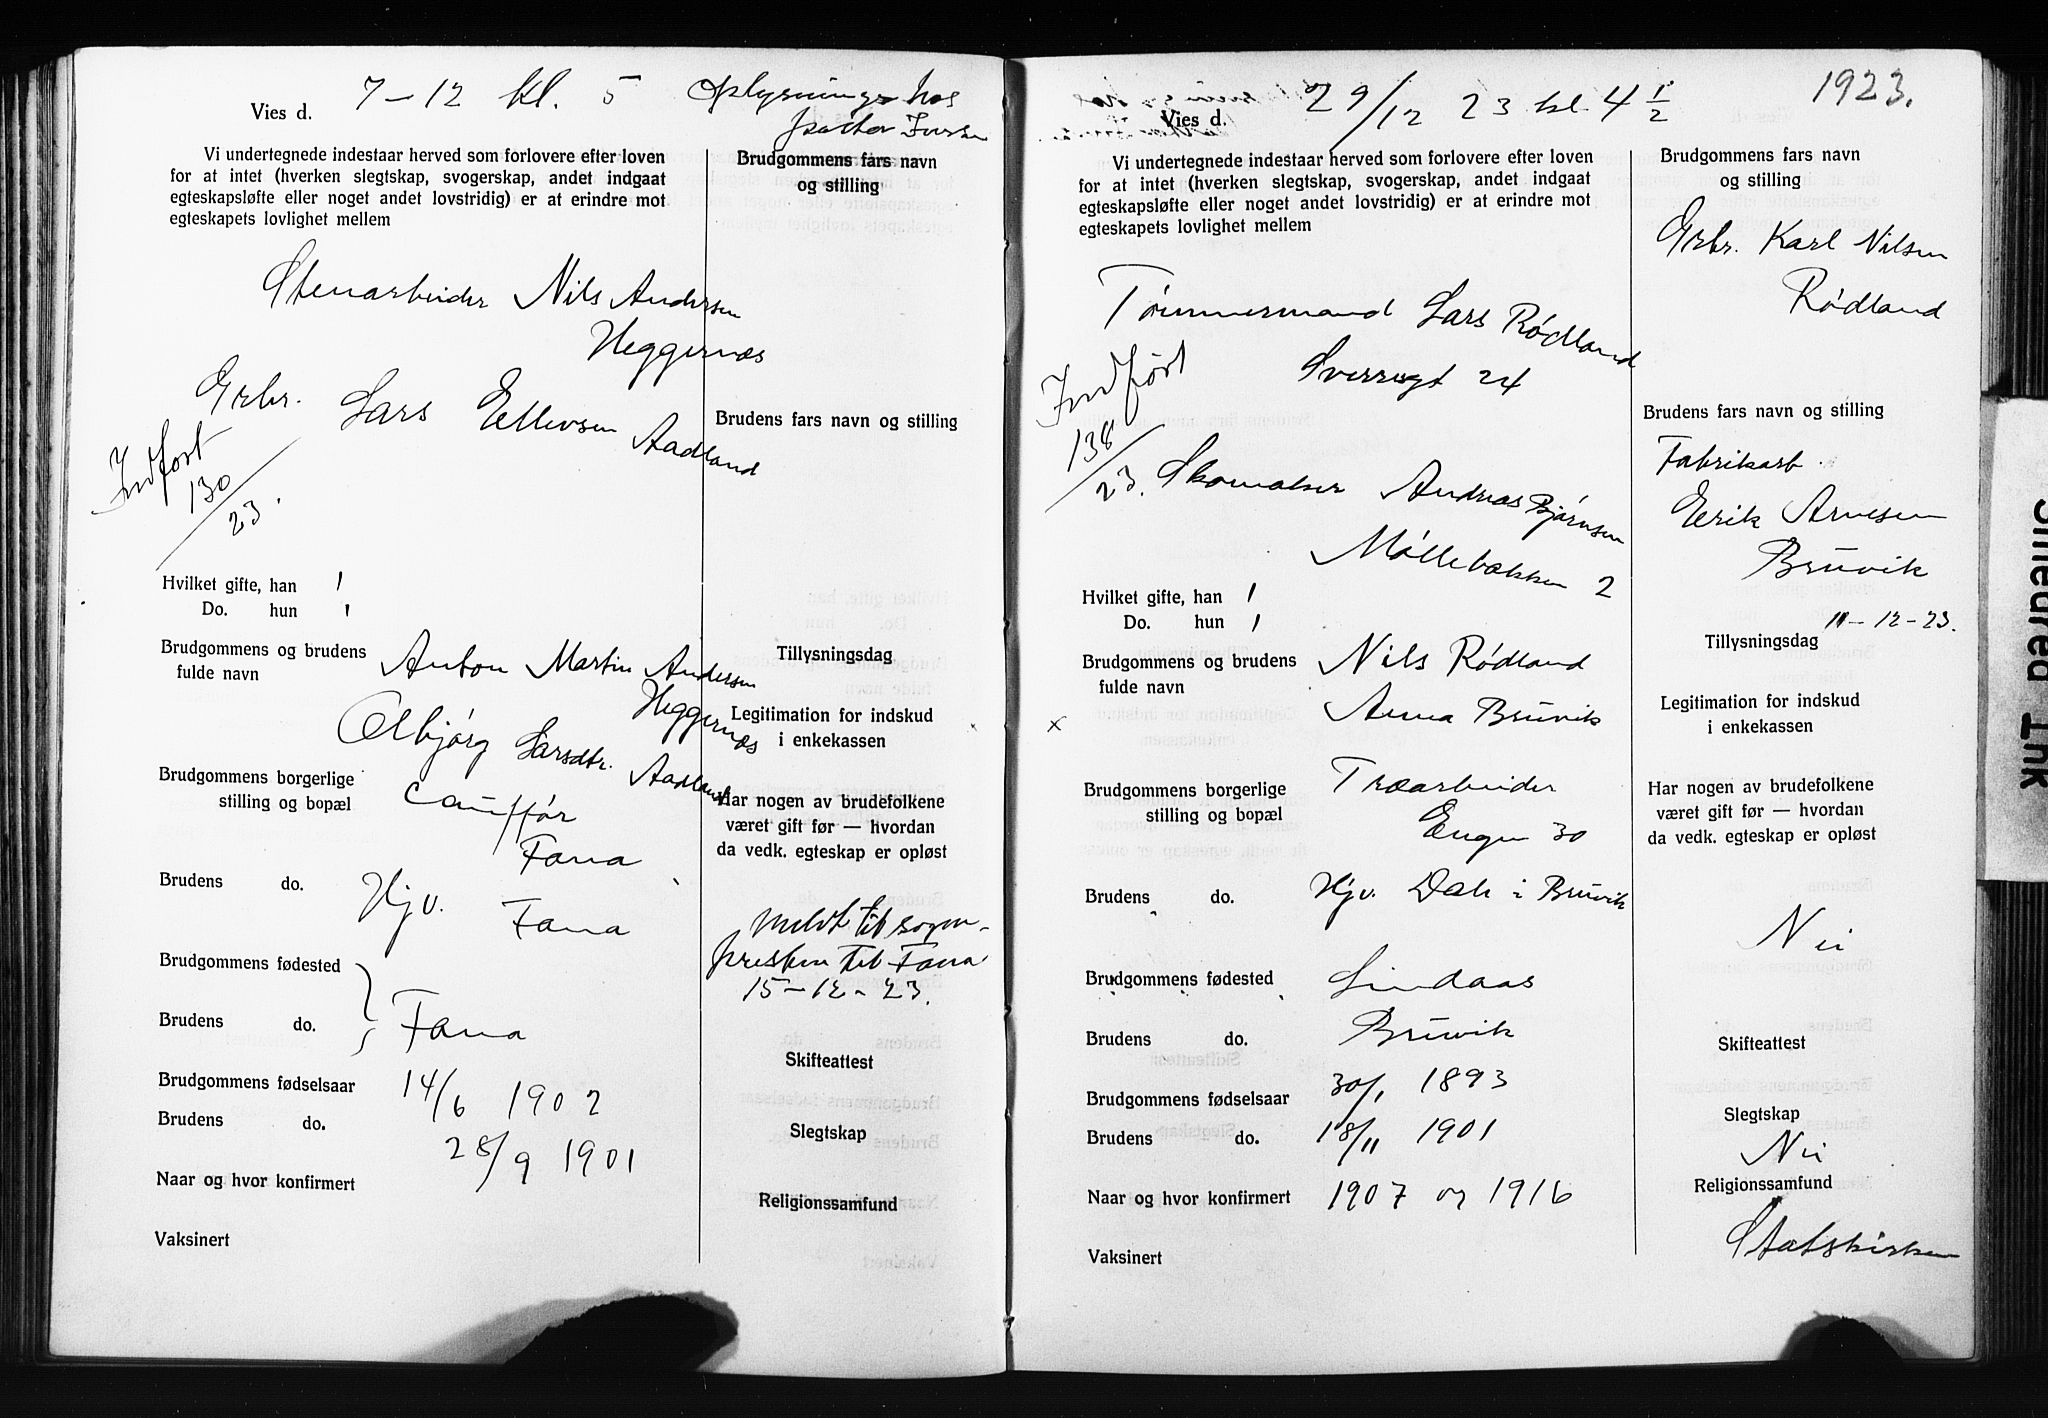 7-12 kl. 5 Oplysninger hos
pastor
Vies d.
Vi undertegnede indestaar herved som forlovere efter loven
for at intet (hverken slegtskap, svogerskap, andet indgaat
egteskapsløfte eller noget andet lovstridig) er at erindre mot
egteskapets lovlighet mellem
Brudgommens fars navn
og stilling
Stenarbeider Nils Andersen
Heggernæs
Grbr. Lars Ellevsen Aadland
Brudens fars navn og stilling
Indført
130
/23.
Hvilket gifte, han 1
Do. hun 1
Brudgommens og brudens
fulde navn
Anton Martin Andersen
Heggernæs
Olbjørg Larsdtr. Aadland
Tillysningsdag
Legitimation for indskud
i enkekassen
Brudgommens borgerlige
stilling og bopæl
Fana
Har nogen av brudefolkene
været gift før — hvordan
da vedk. egteskap er opløst
Brudens do. Hjv. Fana
Meldt til sogne-
presten til Fana
15-12-23.
Brudgommens fødested
Brudens do.
Fana
Skifteattest
Brudgommens fødselsaar 14/6 1902
Brudens do. 28/9 1901
Slegtskap
Naar og hvor konfirmert
Religionssamfund
Vaksinert
1923.
Vies d. 29/12 23 kl 4 1/2
Vi undertegnede indestaar herved som forlovere efter loven
for at intet (hverken slegtskap, svogerskap, andet indgaat
egteskapsløfte eller noget andet lovstridig) er at erindre mot
egteskapets lovlighet mellem
Brudgommens fars navn
og stilling
Grbr. Karl Nilsen
Rødland
Tømmermand Lars Rødland
Sverresgt 24
Indført
138
/23.
Skomaker Andreas Bjørnsen
Møllebakken 2
Brudens fars navn og stilling
Fabrikarb.
Erik Arnesen
Bruvik
Hvilket gifte, han 1
Do. hun 1
11-12-23.
Tillysningsdag
Brudgommens og brudens
fulde navn
Nils Rødland
x Anna Bruvik
Legitimation for indskud
i enkekassen
Brudgommens borgerlige
stilling og bopæl
Træarbeider
Engen 30
Har nogen av brudefolkene
været gift før — hvordan
da vedk. egteskap er opløst
Nei
Brudens do. Hjv. Dale i Bruvik
Brudgommens fødested Lindaas
Brudens do. Bruvik
Skifteattest
Brudgommens fødselsaar 30/1 1893
Brudens do. 18/11 1901
Slegtskap
Nei
Naar og hvor konfirmert 1907 og 1916
Religionssamfund
Statskirken
Vaksinert
Smedred Ink